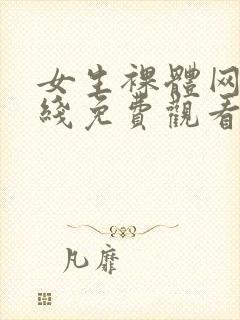 女生裸體网
綫免費觀看
凡靡